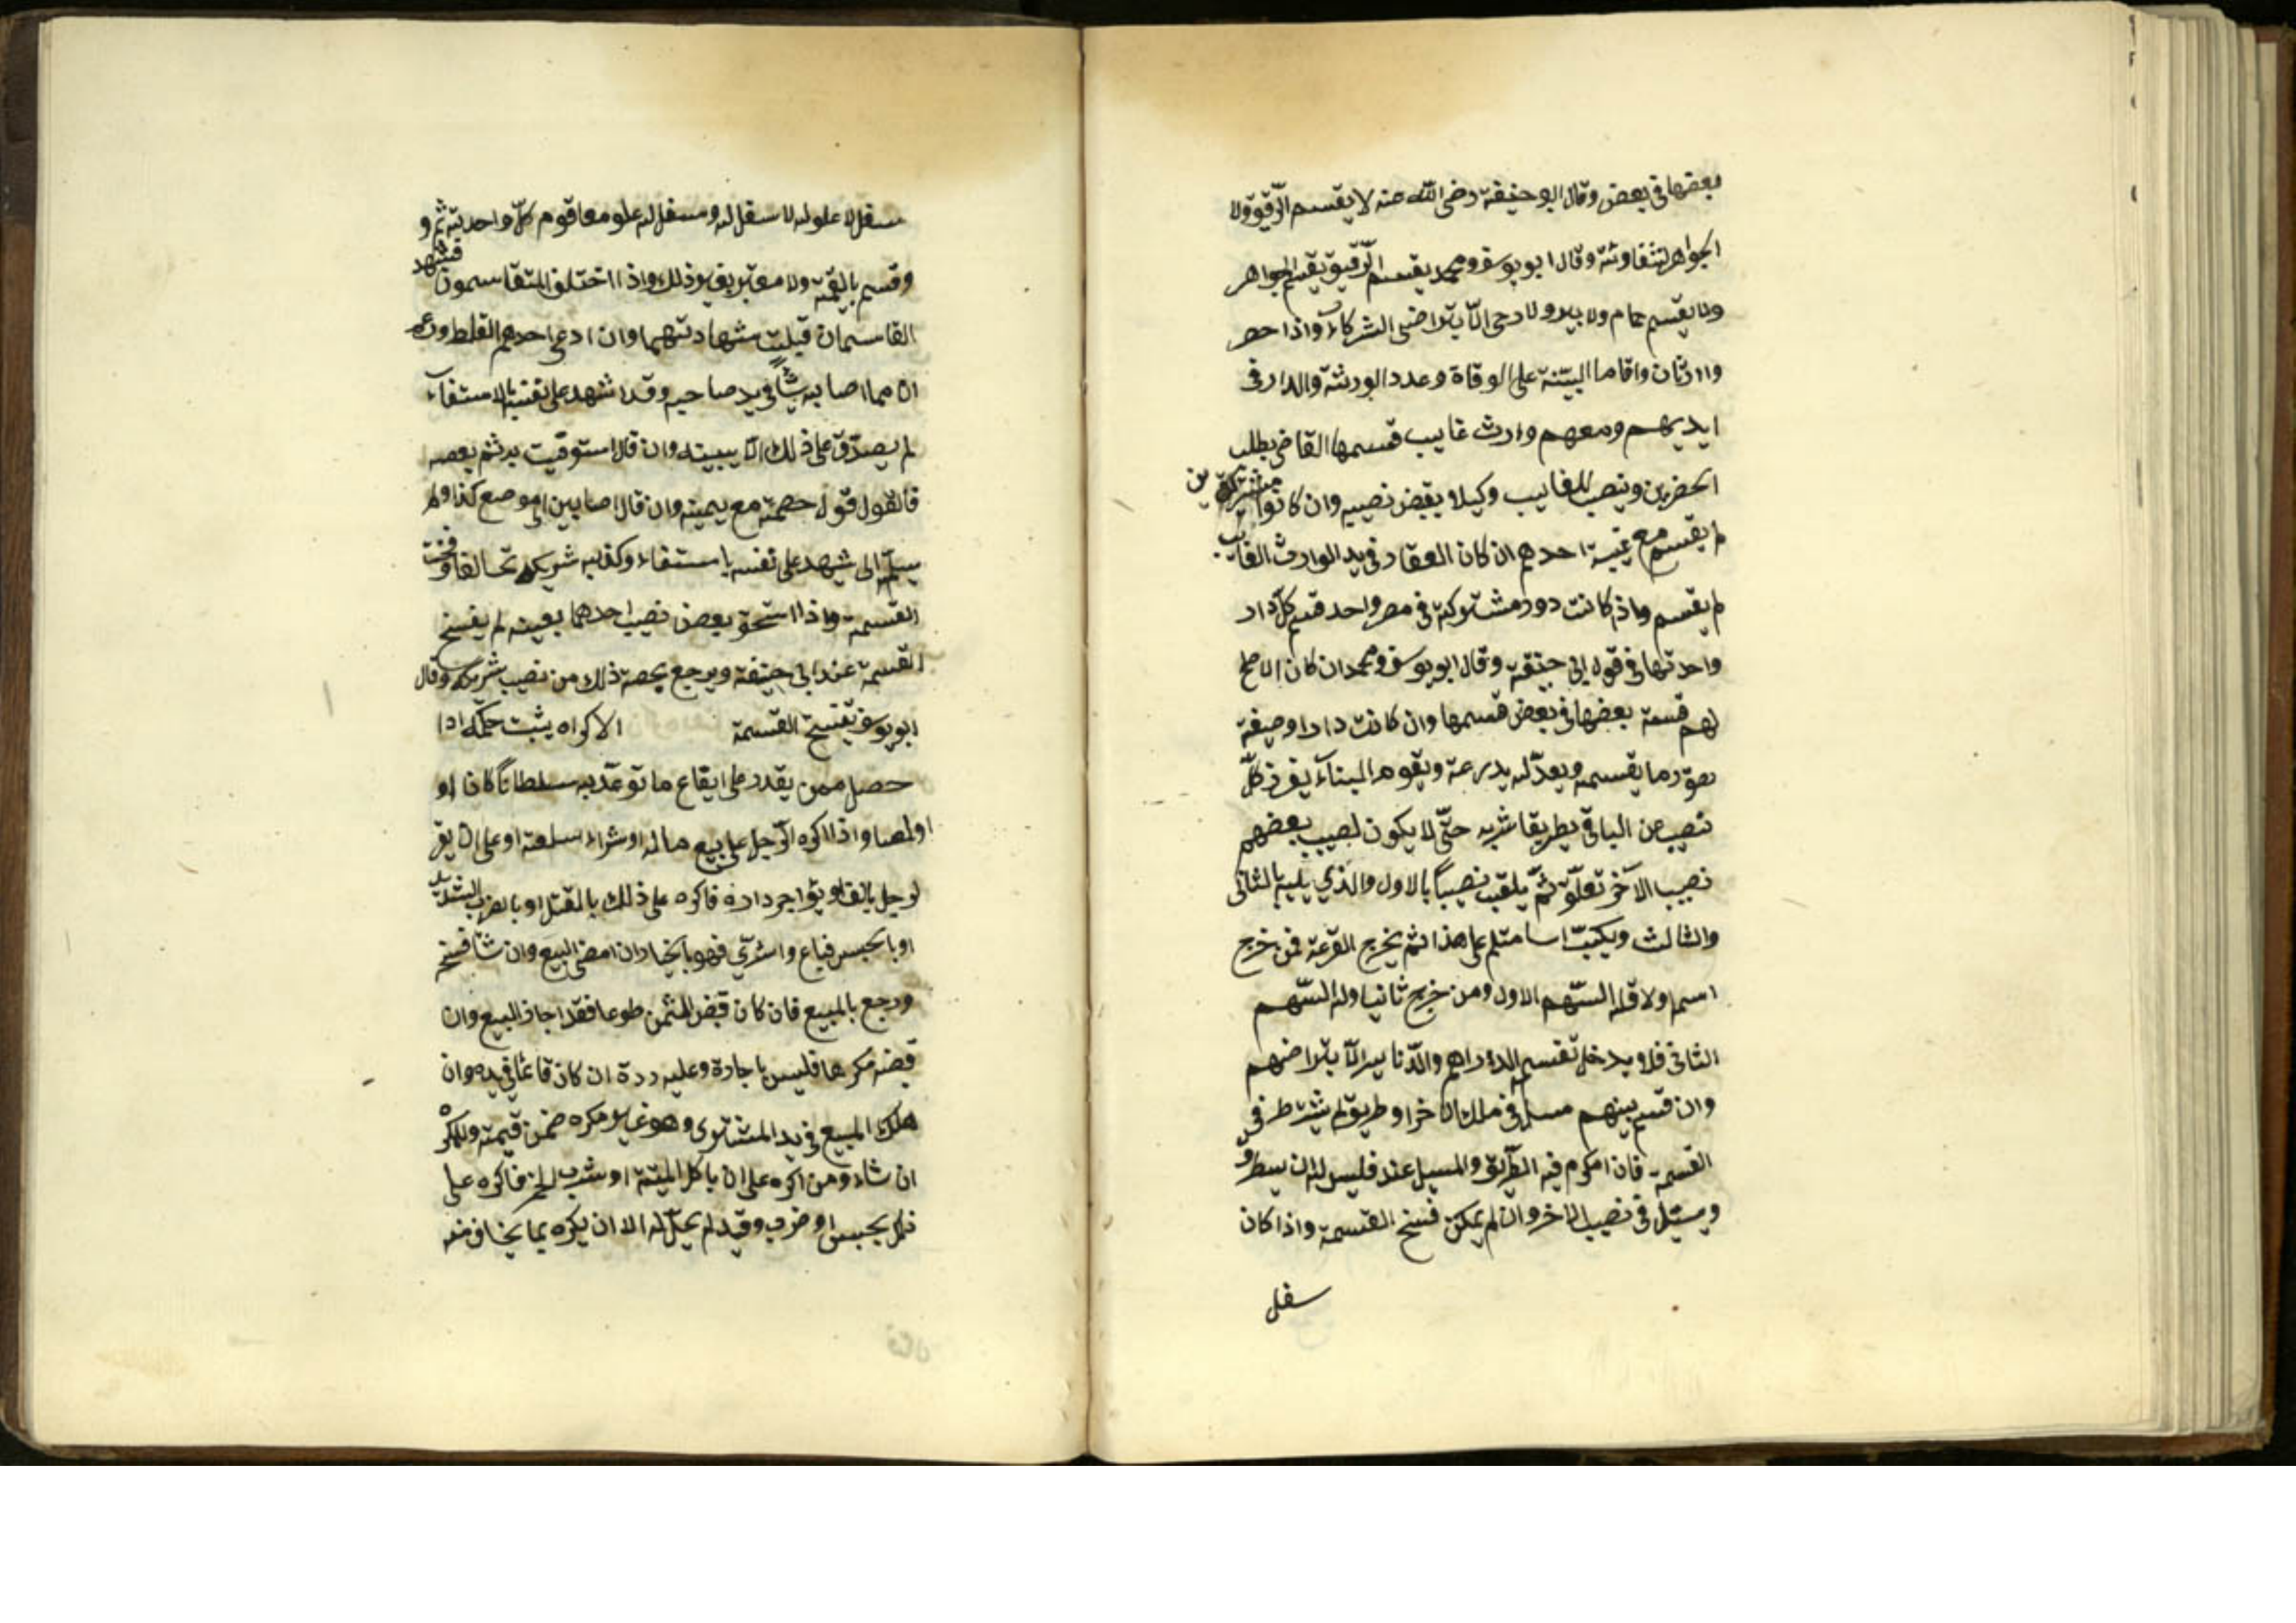 بعضها في بعض وقال ابو حنيفة رضي الله عنه لا يقسم الرّقيق ولا
الجواهر لتفاوته وقال ابو يوسف ومحمد يقسم الرّقيق يقسم الجواهر
ولا يقسم حمام ولا بير ولا رحى الّا بتراضى الشركاء واذا حضر
وارثان واقاما البيّنة على الوفاة وعدد الورثة والدار في
ايديهم ومعهم وارث غايب قسمها القاضي بطلب
الحضرين وينصب للغايب وكيلا يقبض نصيبه وان كانوا مشتركين
لم يقسم مع غيبة احدهم ان كان العقار في يد الوارث الغايب
لم يقسم واذا كانت دور مشتركة في مصر واحد قسم كلّ دار
واحدتها في قول ابي حنيفة وقال ابو يوسف ومحمد ان كان الاصلح
لهم قسمة بعضها في بعض قسمها وان كانت دارا وصيغة
صوّر ما يقسمه ويعدّله يدرعة ويقوم البيناء يفرز كلّ
نصيب من الباقي بطريقا شربه حتّى لا يكون لصيب بعضهم
نصيب الآخر تعلّق ثمّ يلقب نصيباً بالاول والذي يليه بالثاني
والثالث ويكتب اسامتلم على هذا ثم يخرج القرعة فمن خرج
اسم اولا فله السّهم الاول ومن خرج ثانيا وله السّهم
الثاني فلا ويدخل تقسم الدراهم والدّنانير الّا بتراضهم
وان قسم بينهم مسيل في ملك الاخر او طريق لم يشرط في
القسمة فان امكن صرف الطّريق والمسيل عند فليس له ان يسطرو
ويسيّل في نصيب الاخر وان لم يمكن فسخ القسمة واذا كان
سفل
سفل لا علو له لا سفل له وسفل له علو معا قوم كلّ واحد بته ثم و
وقسم بالقيمة ولا معتبر بغير ذلك واذا اختلف المتقاسمون فشهد
القاسمان قبلت شهادتهما وان ادعى احدهم الغلط وزعم
ان مما اصابه شيأً في يد صاحبه وقد اشهد على نفسه بالاستفآء
لم يصدّق على ذلك الّا ببينه وان قال استوفيت ثم بعضه
فالقول قول خصمه مع يمينه وان قال اصابين الى موضع كذا ولم
يسلّم الى شهد على نفسه باستفاء وكذبه شريكه تحالفا وفسخت
القسمة واذا استحق بعض نصيب احدهما بعينه لم يفسخ
القسمة عند ابي حنيفة ويرجع بحصة ذلك من نصيب شريكه وقال
ابو يوسف يفتسخ القسمة الاكراه يثبت حكمه اذا
حصل ممن يقدر على ايقاع ما توعّد به سلطاناً كانا او
اولصا واذا اكره الرّجل على بيع ماله او شراء سلعة او على ان يقر
لرجل بالف او يؤاجر داره فاكره على ذلك بالقتل او بالضرب الشديد
او بالحبس فباع واشترى فهو بالخيار ان امضى البيع وان شا فسخ
ورجع بالمبيع فان كان قبض الثمن طوعا فقد اجاز البيع وان
قبضه مكرها فليس باجارة وعليه ردة ان كان قائما في يده وان
هلك المبيع في يد المشترى وهو غير مكره ضمن قيمته وللمكره
ان شاء ومن اكره على ان ياكل الميتة او شرب الخمر فاكره على
ذلك بحبس او ضرب وقيد لم يحلّ له الا ان يكره بما يخاف منه